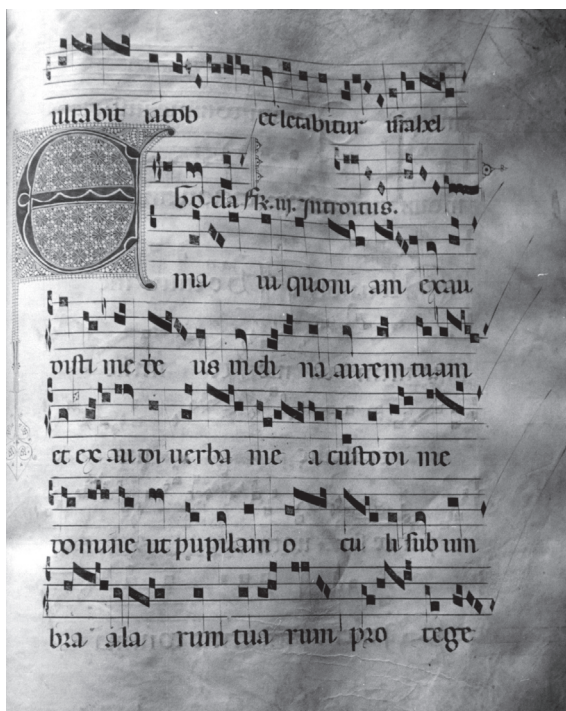 ultabit iacob et letabitur israhel
Go cla fR. iij. Introitus.
E ma ui quoni am exau
disti me de us in cli na aurem tuam
et ex au di uerba me a custo di me
do mine ut pupilam o cu li sub um
bra ala rum tua rum pro tege